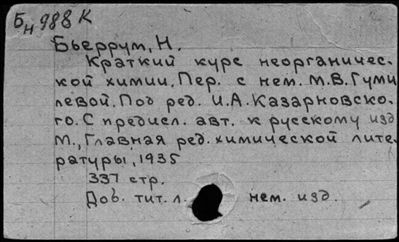 Бн 988 К
Бьеррум, Н.
Краткий курс неорганичес-
кой химии. Пер. с нем. М.В. Гуми
левой. Под ред. И.А. Казарновско-
го. С предисл. авт. к русскому изд
М., Главная ред. химической лите-
ратуры, 1935
337 стр.
Доб. тит. л. нем. изд.